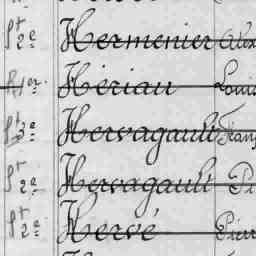 St 2e Hermenier Alex
1er Hérian Louis
St 3e Hervagault Franç
St 2e Hervagault Pi
St 2e Hervé Pierr